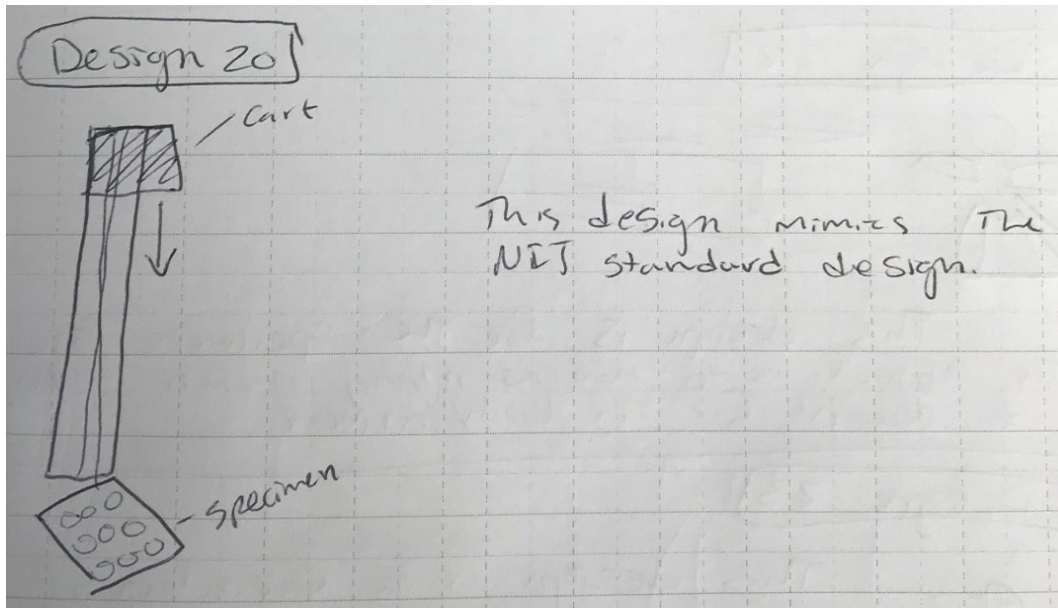 Design 20
Cart
This design mimics The
NIJ standard design.
specimen